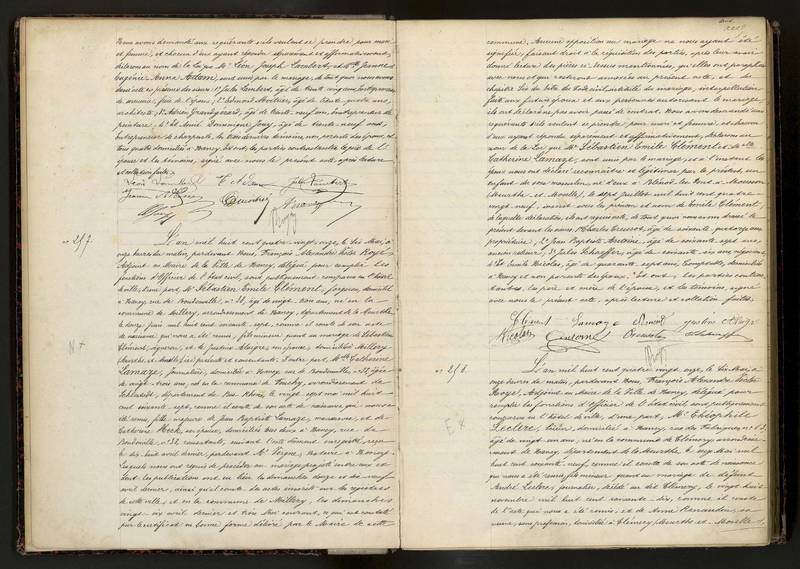 Nous avons demandé aux requérants s'ils veulent se prendre pour mari
et femme, et chacun d'eux ayant répondu séparément et affirmativement,
déclarons au nom de la loi que Mr Léon Joseph Lambert et Mlle Jeanne
Eugénie Anna Adam, sont unis par le mariage, de tout quoi nous avons
dressé acte en présence des sieurs 1° Jules Lambert, âgé de vingt cinq ans,
frère de l'époux, 2° Edmond Mortier, âgé de trente quatre ans,
architecte, 3° Adrien Grandgérard, âgé de trente neuf ans, entrepreneur de
peinture, 4° et Dominique Jouy, âgé de trente neuf ans,
entrepreneur de charpente, les témoins non parents des époux, et
tous quatre domiciliés à Nancy. Et ont, les parties contractantes, le père de l'
époux et les témoins, signé avec nous le présent acte, après lecture
et collation faites.
N° 217.
L'an mil huit cent quatre vingt onze, le six Mai, à
onze heures du matin, pardevant Nous, François Alexandre Victor Royé,
Adjoint au Maire de la Ville de Nancy, délégué pour remplir les
fonctions d'Officier de l'état civil, sont publiquement comparus en l'hôtel
de ville, d'une part, Mr Sébastien Emile Clément, forgeron, domicilié
à Nancy rue de Boudonville, n° 31, âgé de vingt trois ans, né en la
commune de Millery, arrondissement de Nancy, département de la Meurthe
le douze juin mil huit cent soixante sept, comme il conste de son acte
de naissance qui nous a été remis, fils majeur quant au mariage de Sébastien
Clément, vigneron, et de Justine Alizé, son épouse, domiciliés à Millery
(Meurthe et Moselle) ici présents et consentants. D'autre part Mlle Catherine
Lamaze, journalière, domiciliée à Nancy rue de Boudonville, n° 31, âgée
de vingt trois ans, née en la commune de Fouchy, arrondissement de
Schlestadt, département du Bas Rhin, le vingt sept mai mil huit
cent soixante sept, comme il conste de son acte de naissance qui nous a
été remis, fille majeure de Jean Baptiste Lamaze, manœuvre, et de
Catherine Heck, son épouse, domiciliés tous deux à Nancy, rue de
Boudonville, n° 32, consentants, suivant l'acte dûment enregistré, reçu
le dix huit avril dernier, pardevant Me Vergne, Notaire à Nancy.
Lesquels nous ont requis de procéder au mariage projeté entre eux et
dont les publications ont eu lieu les dimanches douze et dix neuf
avril dernier, ainsi qu'il conste des actes inscrits sur les registres
de cette ville, et en la commune de Millery, les dimanches
vingt six avril dernier et trois Mai courant, ce qui est constaté
par le certificat en bonne forme délivré par le Maire de cette
commune. Aucune opposition au mariage ne nous ayant été
signifiée, faisant droit à la réquisition des parties, après leur avoir
donné lecture des pièces ci-dessus mentionnées, qu'elles ont paraphées
avec nous et qui resteront annexées au présent acte, et du
chapitre six du titre du Code civil, intitulé du mariage, interpellation
faite aux futurs époux et aux personnes autorisant le mariage,
ils ont déclaré ne pas avoir passé de contrat. Nous avons demandé aux
requérants s'ils veulent se prendre pour mari et femme, et chacun
d'eux ayant répondu séparément et affirmativement, déclarons au
nom de la Loi que Mr Sébastien Emile Clément et Mlle
Catherine Lamaze, sont unis par le mariage, et à l'instant les
époux nous ont déclaré reconnaître et légitimer par le présent, un
enfant du sexe masculin né d'eux à Blénod-lès-Pont-à-Mousson
(Meurthe et Moselle), le sept juillet mil huit cent quatre
vingt neuf, inscrit sous les prénom et nom de Emile Clément,
de laquelle déclaration, ils ont requis acte, de tout quoi nous avons dressé le
présent devant les sieurs 1° Charles Cressot, âgé de soixante quatorze ans,
propriétaire, 2° Jean Baptiste Antoine, âgé de soixante sept ans,
ancien cultivateur, 3° Jules Schaffer, âgé de soixante six ans, négociant,
et 4° Emile Nicolas, âgé de quarante sept ans, comptable, domiciliés
à Nancy et non parents des époux. Et ont, les parties contrac-
tantes, les père et mère de l'époux, et les témoins, signé
avec nous le présent acte, après lecture et collation faites.
Clément Lamaze Clément Justine Alizé
Nicolas Antoine
N° 218.
L'an mil huit cent quatre vingt onze, le six Mai à
onze heures du matin, pardevant Nous, François Alexandre Victor
Royé, Adjoint au Maire de la Ville de Nancy, délégué pour
remplir les fonctions d'Officier de l'état civil, sont publiquement
comparus en l'hôtel de ville, d'une part, Mr Théophile
Leclerc, domicilié à Nancy, rue des Fabriques n° 13,
âgé de vingt un ans, né en la commune de Clémery, arrondisse-
ment de Nancy, département de la Meurthe, le vingt Mai mil
huit cent soixante neuf, comme il conste de son acte de naissance
qui nous a été remis, fils mineur quant au mariage de défunt
André Leclerc, journalier, décédé au dit Clémery, le vingt huit
novembre mil huit cent soixante dix, comme il conste
de l'acte qui nous a été remis, et de Anne Renaudin, sa
veuve, sans profession, domiciliée à Clémery (Meurthe et Moselle),